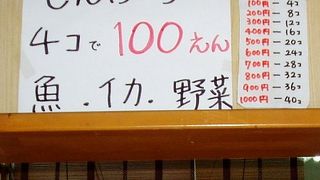 4コで100えん
魚.イカ.野菜
100円-4コ
200円-8コ
300円-12コ
400円-16コ
500円-20コ
600円-24コ
700円-28コ
800円-32コ
900円-36コ
1000円-40コ